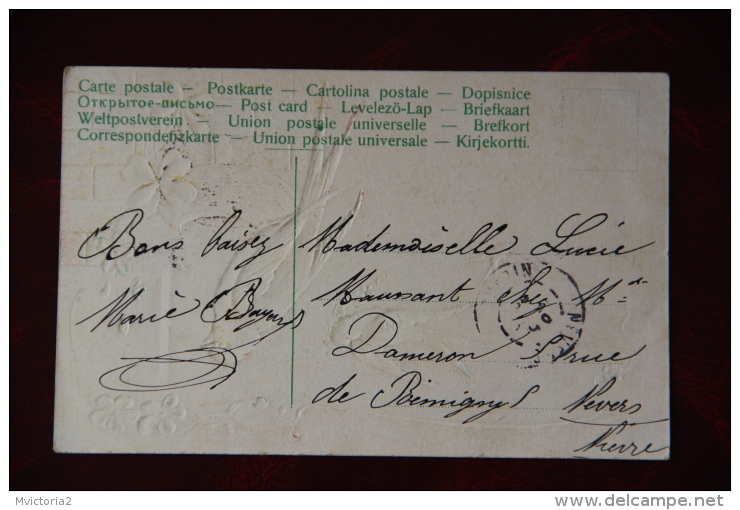 Carte postale — Postkarte — Cartolina postale — Dopisnice
Открытое-письмо — Post card — Levelezö-Lap — Briefkaart
Weltpostverein — Union postale universelle — Brefkort
Correspondenzkarte — Union postale universale — Kirjekortti.
Bons baisez
Marie
Mademoiselle Lucie
Maussant chez Mme
Dameron rue
de Rémigny Nevers
Nièvre
Mvictoria2
www.delcampe.net